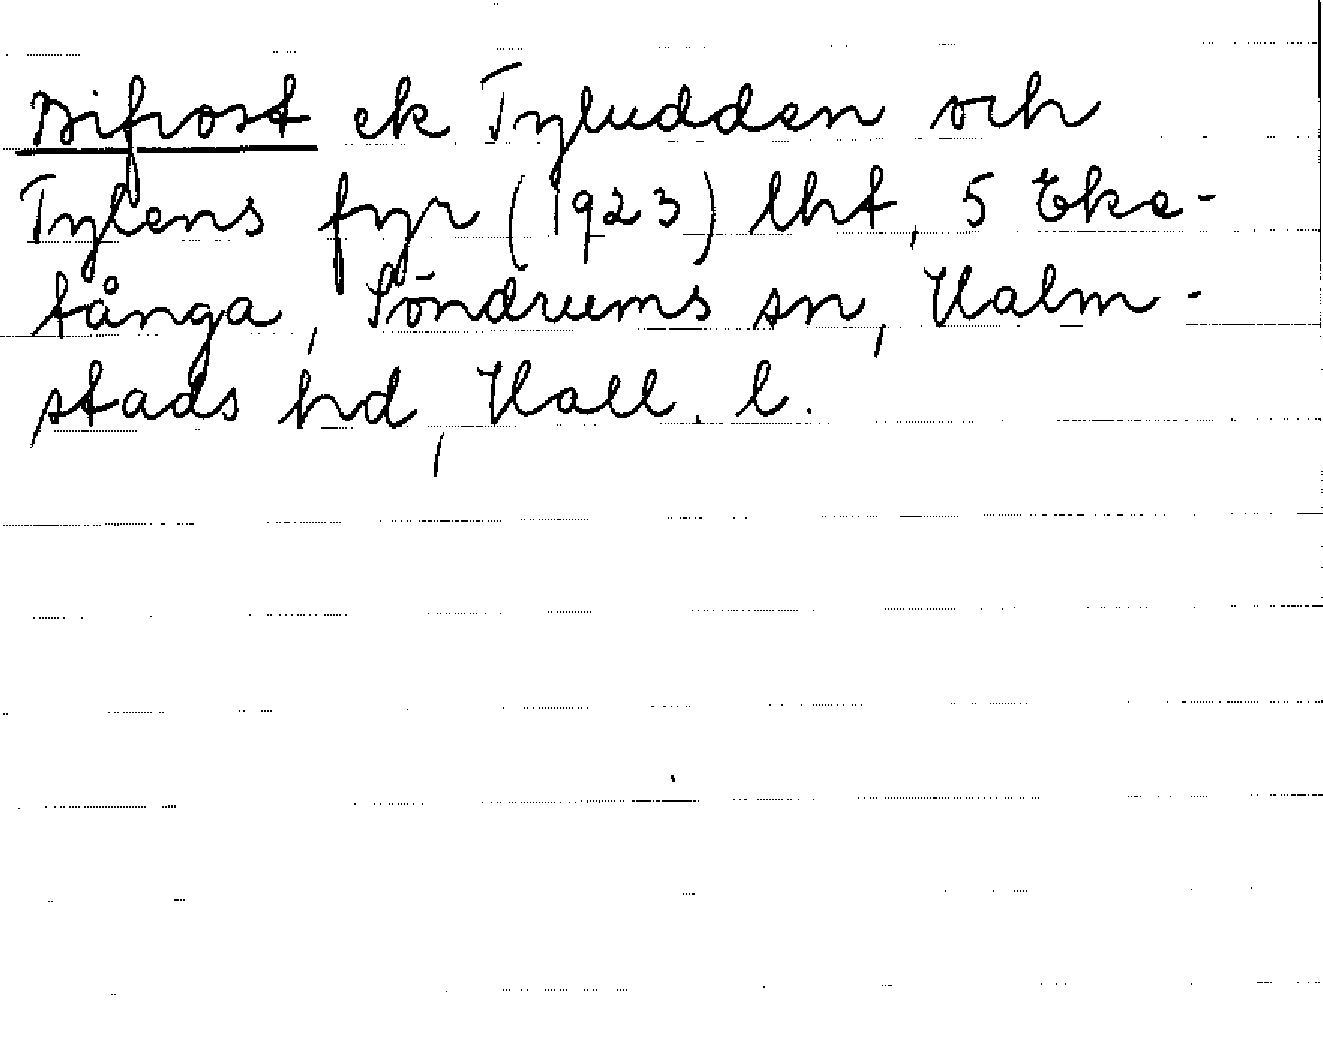 Bifrost ek Tyludden och
Tylens fyr (1923) lht, 5 Eke-
tånga, Söndrums sn, Halm-
stads hd, Hall. l.